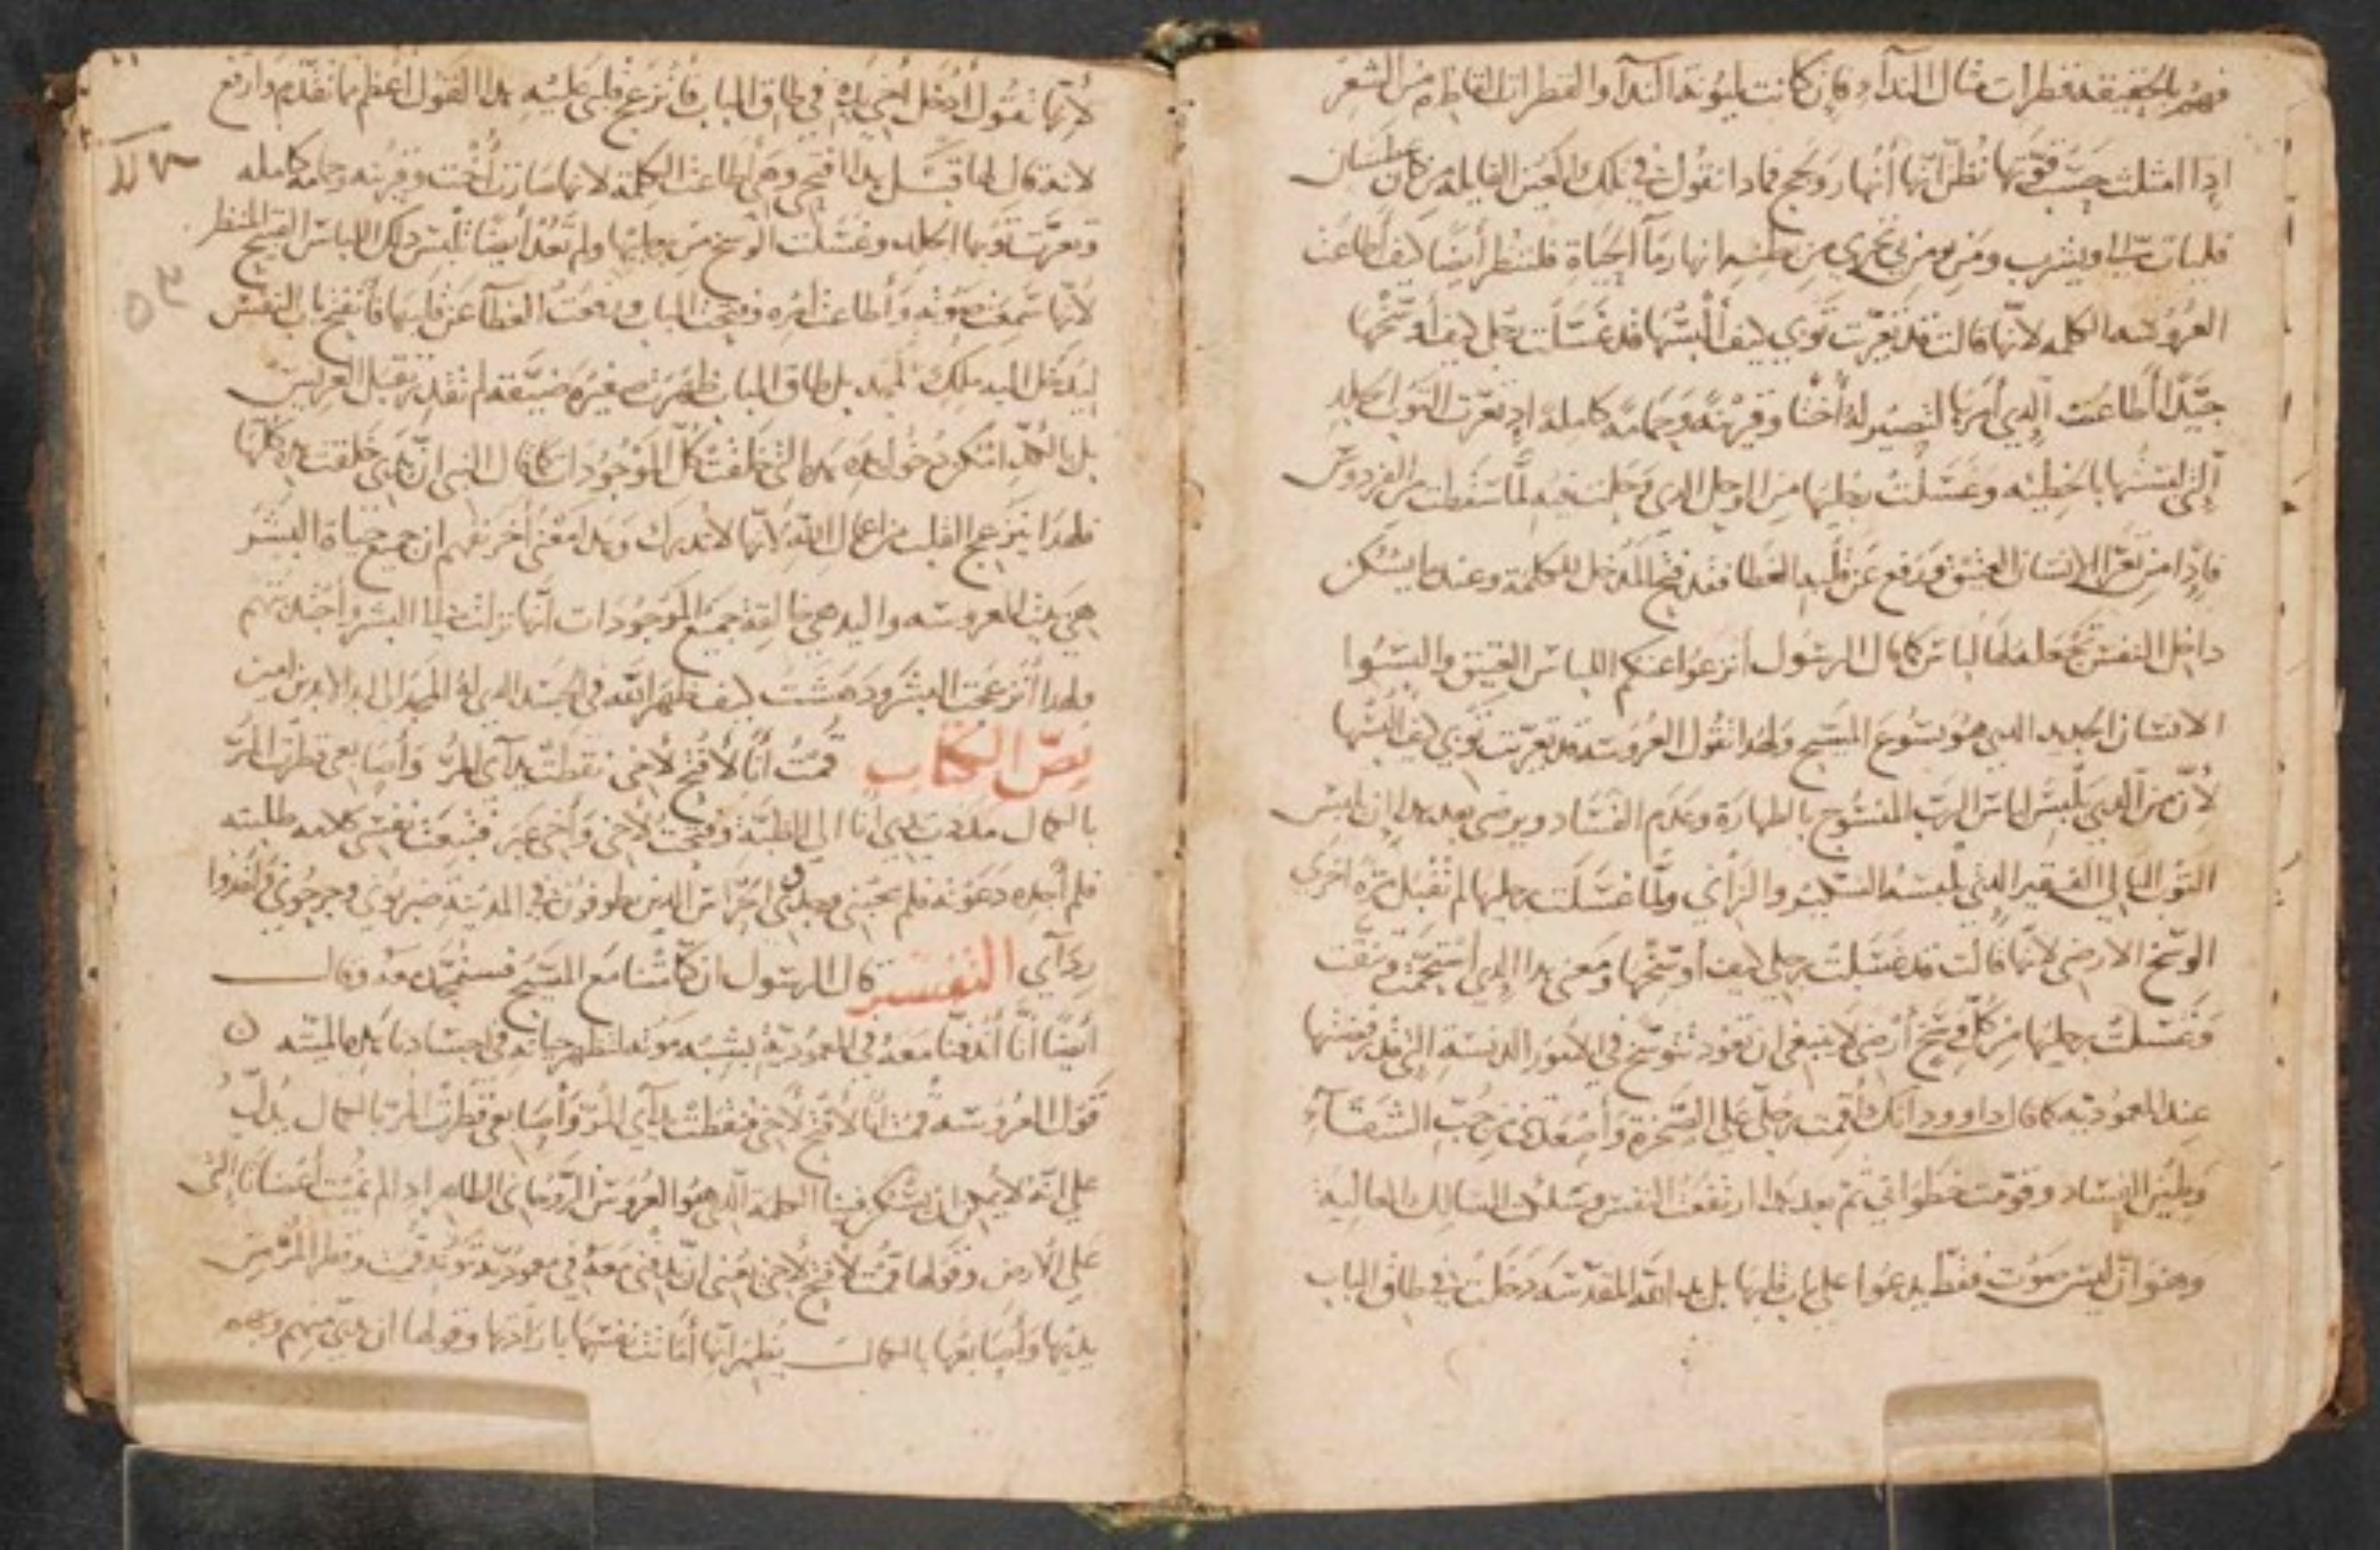 فهم بالحقيقه قطرات مثال الندآ فان كانت يليوندا الندآ والقطرات القاطره من الشعر
ادا امثلت حسب قوتها تظن انها أنهار وبحج فمادا نقول في تلك العين القايله من كان عطشان
فليات اليا ويشرب ومن يومن بي تجري من بطنه انهار مآ الحياة فلننظر أيضًا كيف أطاعت
العروسه الكلمه لانها قالت قد تعريت توبي كيف ألبسها قد غسلت رجلي كيف أوسخها
جيدًا أطاعت الدي أمرها لتصير له أختا وقرينة وحمامه كاملة اد تعرت التوب الجلد
التي لبستها بالخطيه وغسلت رجليها من الوحل الدي وحلت فيه لما سقطت من الفردوس
فادًا من تعرا الانسان العتيق ورفع عن قلبه الغطا فقد فتح المدخل للكلمة وعندما يسكن
داخل النفس تجعلها لها لباس كما قال الرسول أنزعوا عنكم اللباس العتيق والبسوا
الانسان الجديد الدي هو يسوع المسيح ولهدا تقول العروسه قد تعريت توبي كيف ألبسها
لأن من الدي يلبس لباس الرب المنسوج بالطهارة وعدم الفساد ويرضى بعد هدا ان يلبس
التوب البالي الفقير الدي يلبسه السكير والزاني ولما غسلت رجليها لم تقبل مرة اخرى
الوسخ الارضي لانها قالت قد غسلت رجلي كيف أوسخها ومعنى هدا الدي استحمت ونقت
وغسلت رجليها من كل وسخ أرضي لا ينبغي ان تعود تتوسخ في الامور الدنسة التي قد رفضتها
عند المعموديه كما قال داوود انك أقمت رجلي على الصخرة وأصعدتني من جب الشقآء
وطين الفساد وقومت خطواتي ثم بعد هدا ارتفعت النفس وتسلك المسالك العالية
وهو ان ليس صوت فقط يدعوا على باب قلبها بل يد الله المقدسه دخلت في طاق الباب
لأنها تقول أدخل أخي يده في طاق الباب فأنزعج قلبي عليه هدا القول أعظم مما تقدم وارفع
لانه قال لها قبل هدا افتحي وهي أطاعت الكلمة لانها صارت أخت وقرينه وحمامه كامله
وتعرت توبها الجلد وغسلت الوسخ من رجليها ولم تعد أيضًا تلبس دلك اللباس القبيح المنظر
لانها سمعت صوته وأطاعت أمره وفتحت الباب ورفعت الغطآ عن قلبها فأنفتح باب النفس
ليدخل اليه ملك المجد بل طاق الباب ظهرت صغيرة ضيقة لم تقدر تقبل العريس
بل بالجهد أمكن دخول يده هده التي خلقت كل الموجودات كما قال النبي ان يدي خلقت هده كلها
فلهدا ينزعج القلب من اعمال الله لانها لا تدرك وهدا معنى أخر نفهم ان جميع حياة البشر
هي بيت العروسه واليد هي خالقة جميع الموجودات انها نزلت الى البشر وأخدتهم
ولهدا أنزعجت البشر ودهشت كيف ظهر الله في الجسد الدي له المجد الى ابد الابدين امين
نص الكتاب قمت أنا لأفتح لأخي نقطت يدآي المر وأصابعي قطرت المر
بالكمال مددت يدي أنا الى الطبة وفتحت لأخي وأخي عبر فتبعت نفسي كلامه طلبته
فلم أجده دعوته فلم يجبني وجدوني احراس الدين يطوفون في المدينة ضربوني وجرجوني وأخدوا
ردآي التفسير قال الرسول ان كنا متنا مع المسيح فسنتمجد معه وقال
أيضًا أننا أندفنا معه في المعمودية بشبه موته لتظهر حياته في اجسادنا هده المايته ن
قول العروسه قمت أنا لأفتح لأخي فنقطت يدآي المر وأصابعي قطرت المر بالكمال يدل
على انه لا يمكن ان يسكن فينا الكلمة الدي هو العروس الروحاني الطاهر اد لم نميت أعضانا التي
على الارض وقولها قمت لأفتح لأخي يعني ان تدفن معه في معموديته وقطر المر من
يديها وأصابعها بالكمال يظهر أنها أماتت نفسها بارادتها وقولها ان يدي منهم